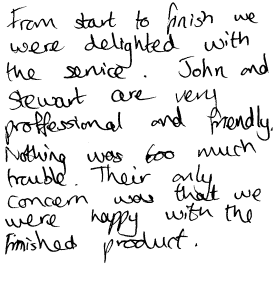 From start to finish we
were delighted with
the service. John and
Stewart are very
proffessional and friendly.
Nothing was too much
trouble. Their only
concern was that we
were happy with the
finished product.